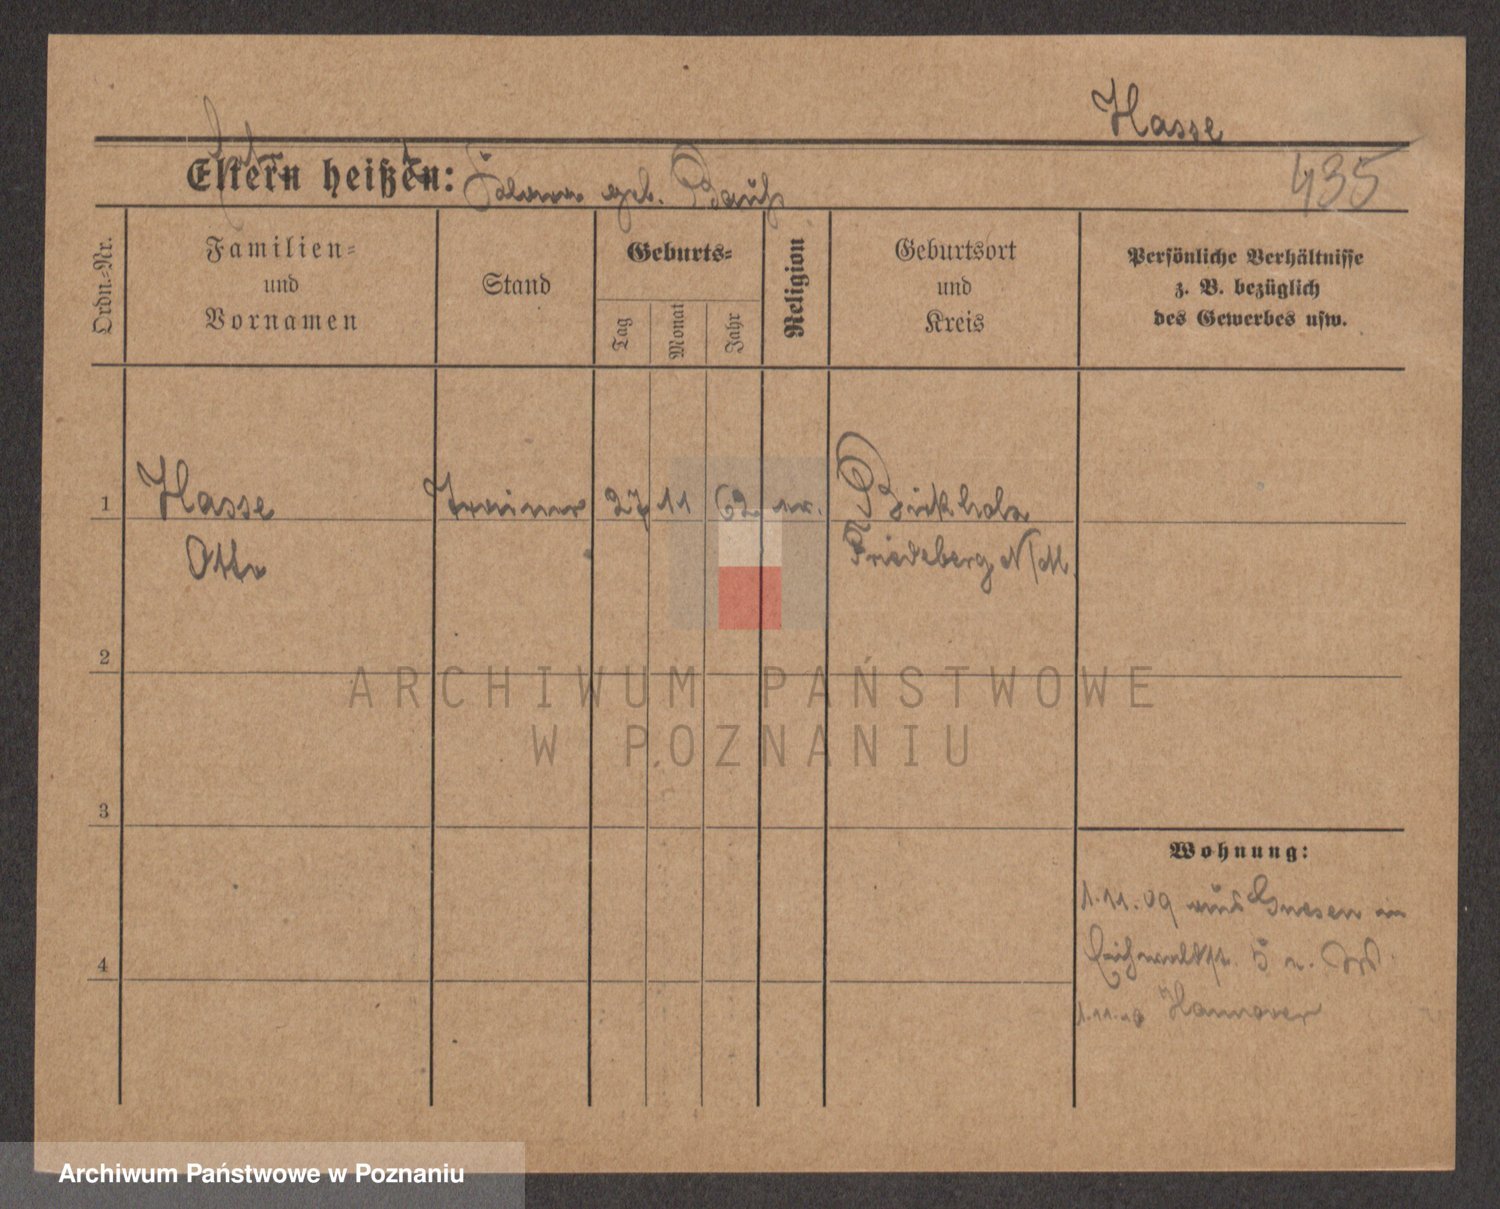 Hasse
435
Eltern heißen:
geb.
Ordn.-Nr.
Familien-
und
Vornamen
Stand
Geburts-
Tag
Monat
Jahr
Religion
Geburtsort
und
Kreis
Persönliche Verhältnisse
z. B. bezüglich
des Gewerbes usw.
1
Hasse
Trainer
27
11
62
Birkholz
Otto
Friedeberg N/M.
2
ARCHIWUM PAŃSTWOWE
W POZNANIU
3
Wohnung:
1.11.09 aus Gnesen in
Eichwaldstr. 5
4
1.11.10 Hannover
Archiwum Państwowe w Poznaniu